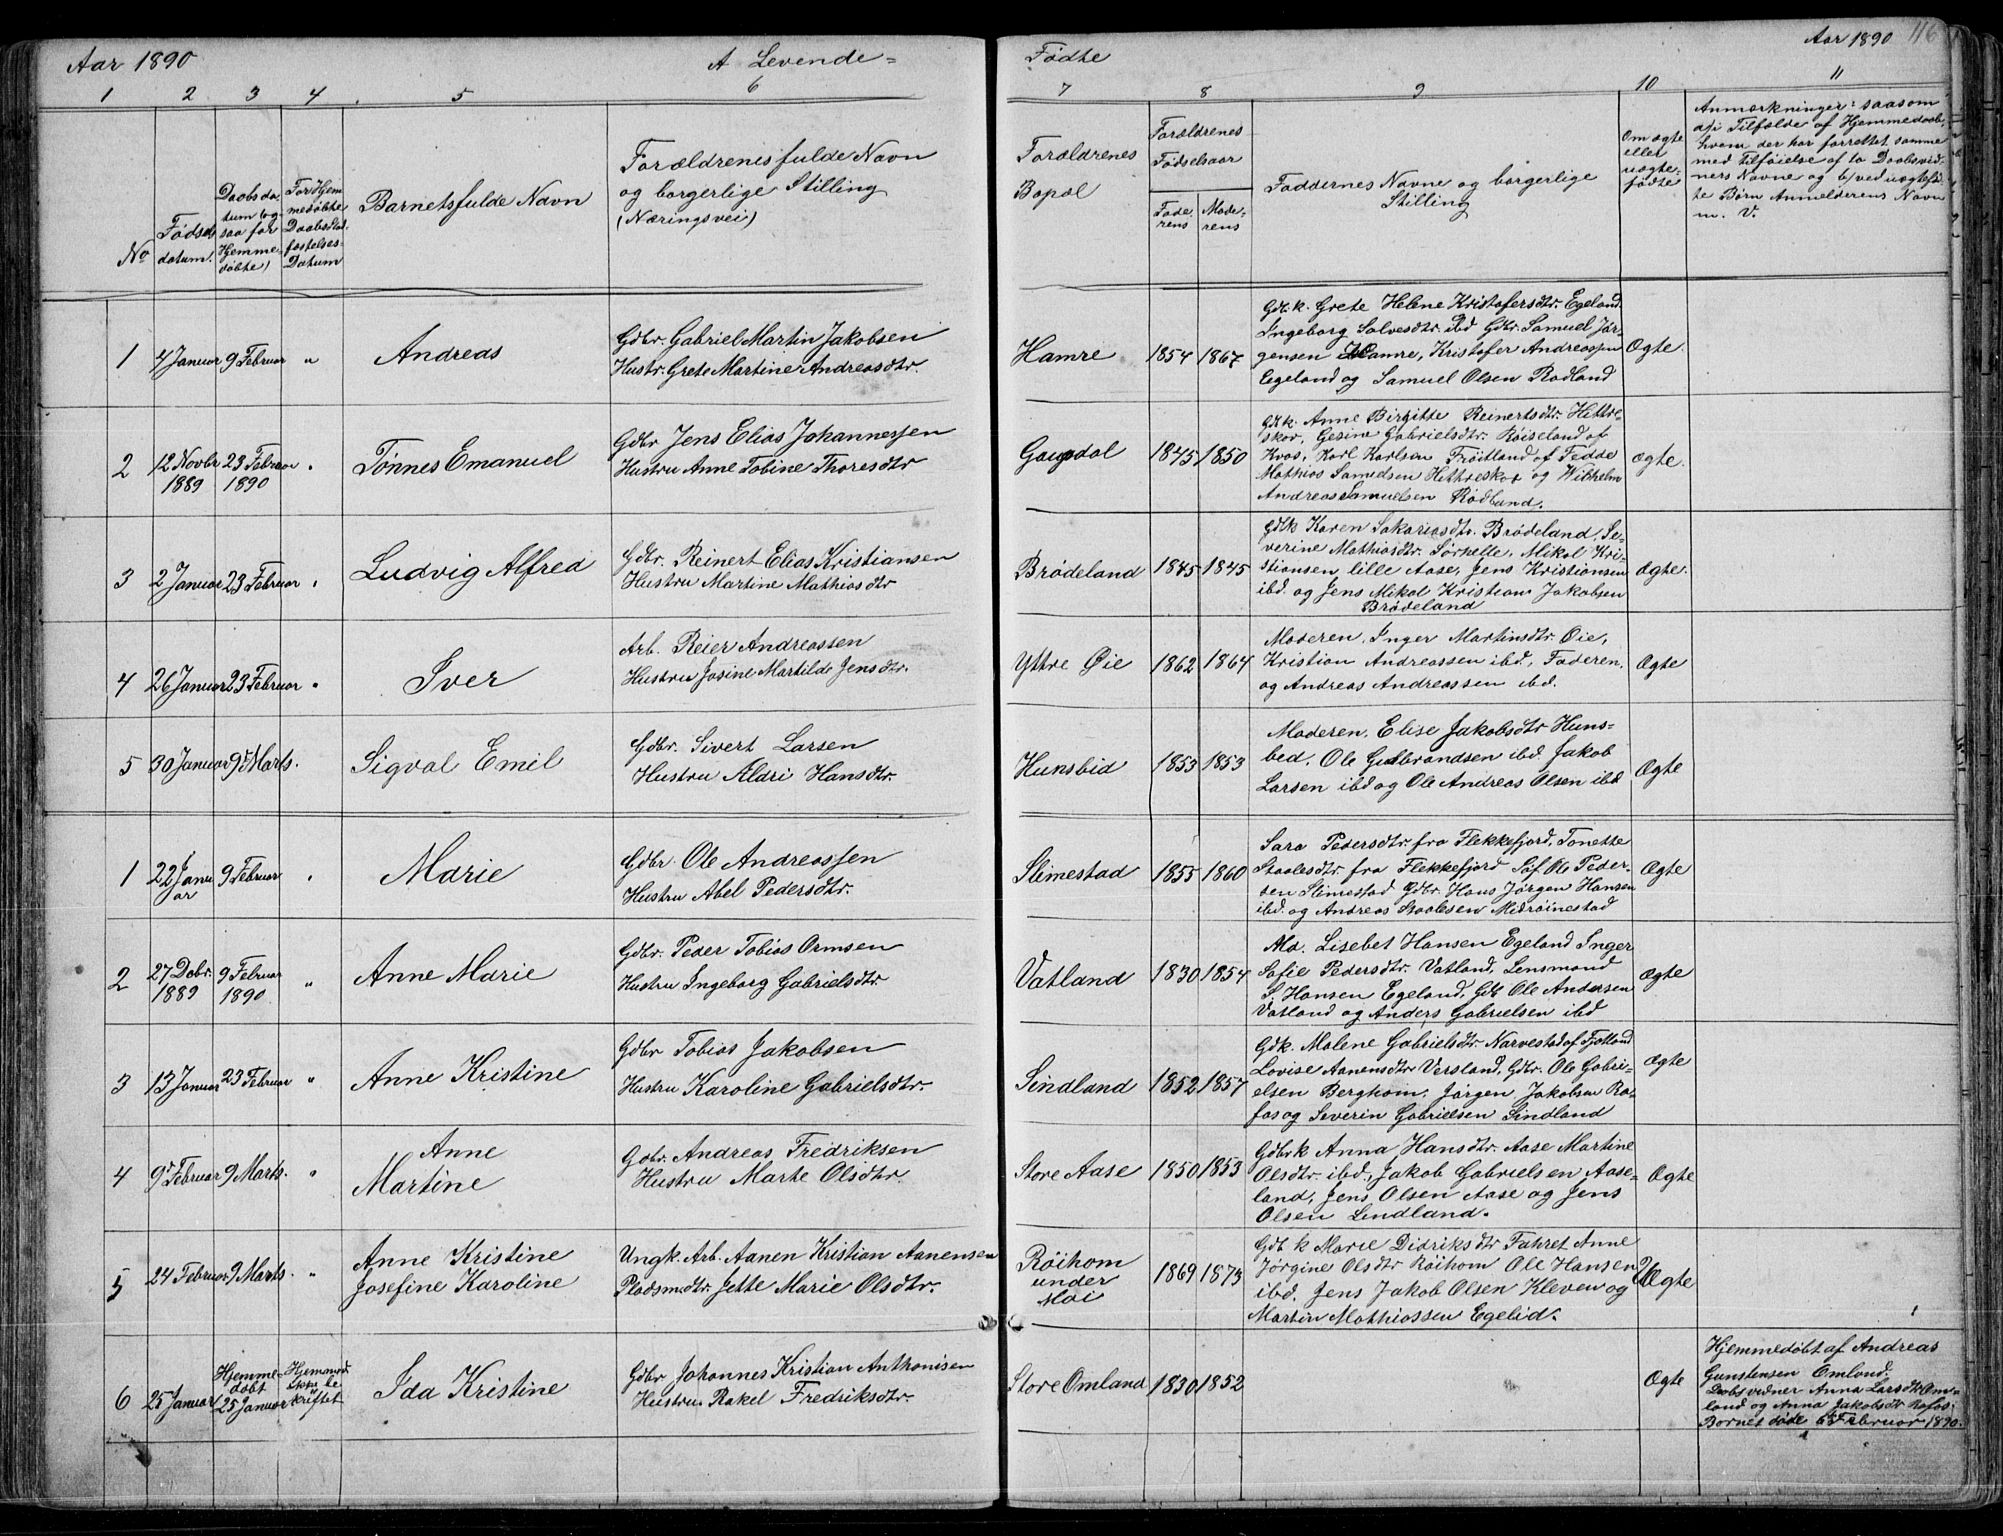 Aar 1890
A Levende=
Fødte
Aar 1890
116
1 2 3 4 5 6 7 8 9 10 11
No
Fødsels
datum.
Daabsda
tum (og
saa for
Hjemme-
døbte)
For Hjem
medøbte
Daabs Stad
fæstelses-
Datum
Barnets fulde Navn
Forældrenes fulde Navn
og borgerlige Stilling
(Næringsvei)
Forældrenes
Bopæl
Forældrenes
Fødselsaar
Fade
rens
Mode-
rens
Faddernes Navne og borgerlige
Stilling
Om ægte
eller
uægte-
fødte
Anmærkninger: saasom
a) i Tilfælde af Hjemmedaab,
hvem der har forrettet samme
med tilføielse af to Daabsvid-
ners Navne og b) ved uægtefød-
te Børn Anmelderens Navn
m. V.
1 4 Januar 9 Februar " Andreas
Gdbr. Gabriel Martin Jakobsen
Hustr. Grete Martine Andreasdtr.
Hamre 1854 1867
Gdb.k. Grete Helene Kristofersdtr. Egeland.
Ingeborg Salvesdtr. ibd Gdbr. Samuel Jør-
gensen Hamre, Kristofer Andreassen
Egeland og Samuel Olsen Rødland
Ægte.
2 12 Novbr 1889 23 Februar 1890 " Tønnes Emanuel
Gdbr Jens Elias Johannessen
Hustru Anne Tobine Thoresdtr
Gaupdal 1845 1850
Gdk. Anne Birgitte Reinertsdtr. Hittre-
skor, Gesine Gabrielsdtr. Røiseland af
Kvas, Karl Karlsen Frøitland af Fedde
Mathias Samuelsen Hettreskor og Wilhelm
Andreas Samuelsen Rødland.
Ægte.
3 2 Januar 23 Februar " Ludvig Alfred
Gdbr. Reinert Elias Kristiansen
Hustru Martine Mathiasdtr
Brødeland 1845 1845
Gdbk Karen Sakariasdtr. Brødeland, Se-
verine Mathiasdtr. Sørhelle, Mikal Kri-
stiansen lille Aase, Jens Kristiansen
ibd. og Jens Mikal Kristian Jakobsen
Brødeland
Ægte.
4 26 Januar 23 Februar " Iver
Arb. Reier Andreassen
Hustru Josine Martilde Jensdtr.
Yttre Øie 1862 1864
Moderen, Inger Martinsdtr. Øie,
Kristian Andreassen ibd, Faderen,
og Andreas Andreassen ibd.
Ægte
5 30 Januar 9de Marts. Sigval Emil
Gdbr. Sivert Larsen
Hustru Aldri Hansdtr.
Hunsbid 1853 1853
Moderen, Elise Jakobsdtr Huns-
bed, Ole Gulbrandsen ibd. Jakob
Larsen ibd og Ole Andreas Olsen ibd
Ægte
1 22 Janu ar 9 Februar " Marie
Gdbr. Ole Andreassen
Hustru Abel Pedersdtr.
Slimestad 1855 1860
Sara Pedersdtr fra Flekkefjord, Tonette
Staalesdtr. fra Flekkefjord Søf. Ole Peder-
sen Slimestad Gdbr. Hans Jørgen Hansen
ibd. og Andreas Staalesen Midrøinestad
Ægte
2 27 Debr. 1889 9 Februar 1890. " Anne Marie
Gdbr. Peder Tobias Ormsen
Hustru Ingeborg Gabrielsdtr.
Vatland 1830 1854
Md. Lisebet Hansen Egeland Inger
Sofie Pedersdtr. Vatland, Lensmand
S. Hansen Egeland, Gdb Ole Andersen
Vatland og Anders Gabrielsen ibd
Ægte
3 13 Januar 23 Februar " Anne Kristine
Gdbr Tobias Jakobsen
Hustru Karoline Gabrielsdtr.
Sindland 1852 1857
Gdk. Malene Gabrielsdtr. Narvestad af Fjotland
Lovise Aanensdtr Versland, Gdbr. Ole Gabri-
elsen Berghom, Jørgen Jakobsen Ra-
fos og Severin Gabrielsen Sindland
Ægte
4 9de Februar 9 Marts. " Anne
Martine
Gdbr. Andreas Fredriksen
Hustru Marte Olsdtr
Store Aase 1850 1853
Gdbrk Anna Hansdtr. Aase Martine
Olsdtr. ibd., Jakob Gabrielsen Aase-
land, Jens Olsen Aase og Jens
Olsen Lindland.
Ægte
5 24 Februar 9 Marts. " Anne Kristine
Josefine Karoline
Ungk. Arb. Aanen Kristian Aanensen
Pladsmdtr. Jette Marie Olsdtr.
Røihom
under
Moi
1869 1873
Gdb k Marie Didriksdtr Fahret Anne
Jørgine Olsdtr Røihom Ole Hansen
ibd. Jens Jakob Olsen Kleven og
Martin Mathiassen Egelid.
UÆgte
6 25 Januar Hjemme-
døbt
25 Januar Hjemmed.
ikke be
kræftet
Ida Kristine
Gdbr Johannes Kristian Anthonisen
Hustru Rakel Fredriksdtr.
Store Omland 1830 1852
Ægte
Hjemmedøbt af Andreas
Gunstensen Omland.
Daabsvidner Anna Larsdtr Om-
land og Anna Jakobsdtr Rafos.
Barnet døde 6te Februar 1890.